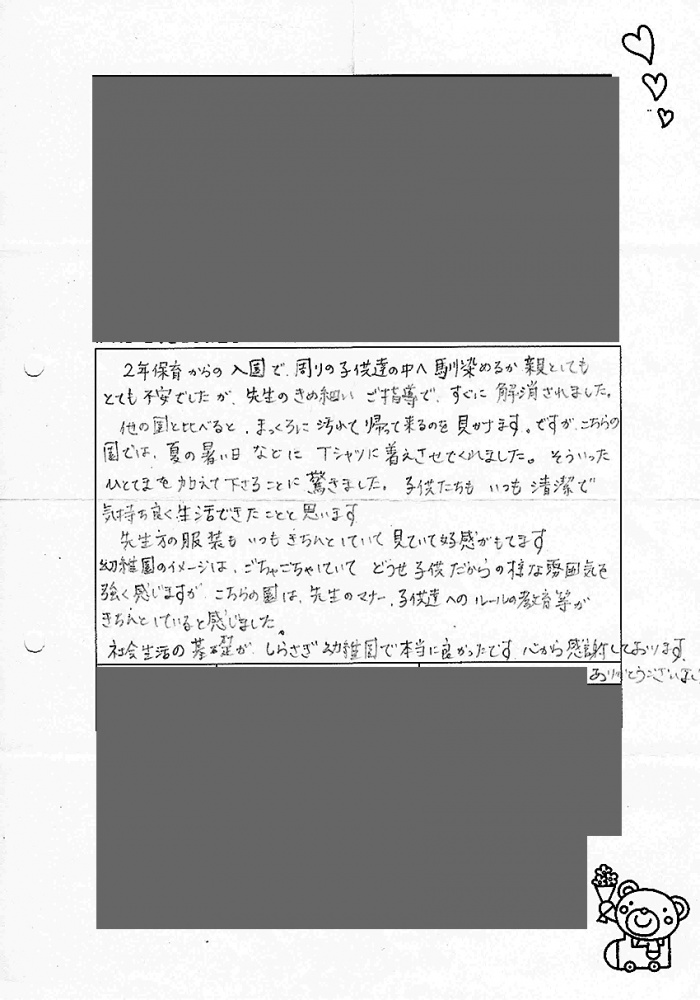 2年保育からの入園で、周りの子供達の中へ馴染めるか親としても
とても不安でしたが、先生のきめ細いご指導で、すぐに解消されました。
他の園と比べると、まっくろに汚れて帰って来るのを見かけます。ですが、こちらの
園では、夏の暑い日などにTシャツに着えさせてくれました。そういった
ひとてまを加えて下さることに驚きました。子供たちもいつも清潔で
気持ち良く生活できたことと思います
先生方の服装もいつもきちんとしていて見ていて好感がもてます
幼稚園のイメージは、ごちゃごちゃしていてどうせ子供だからの様な雰囲気を
強く感じますが、こちらの園は、先生のマナー、子供達へのルールの教育等が
きちんとしていると感じました。
社会生活の基礎が、しらさぎ幼稚園で本当に良かったです心から感謝しております。
ありがとうございまし